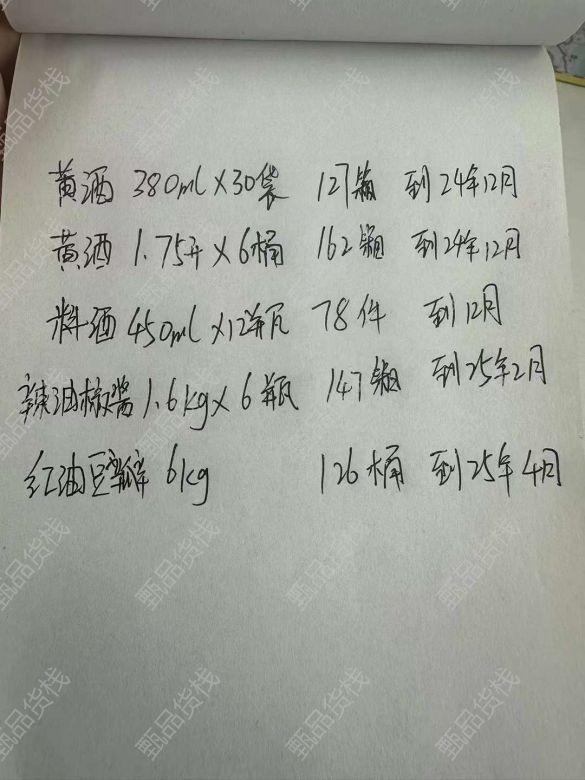 黄酒 380ml×30袋 127箱 到24年12月
黄酒 1.75升×6桶 162箱 到24年12月
料酒 450ml×12瓶 78件 到12月
辣油椒酱 1.6kg×6瓶 147箱 到25年2月
红油豆瓣 6kg 126桶 到25年4月
甄品货栈